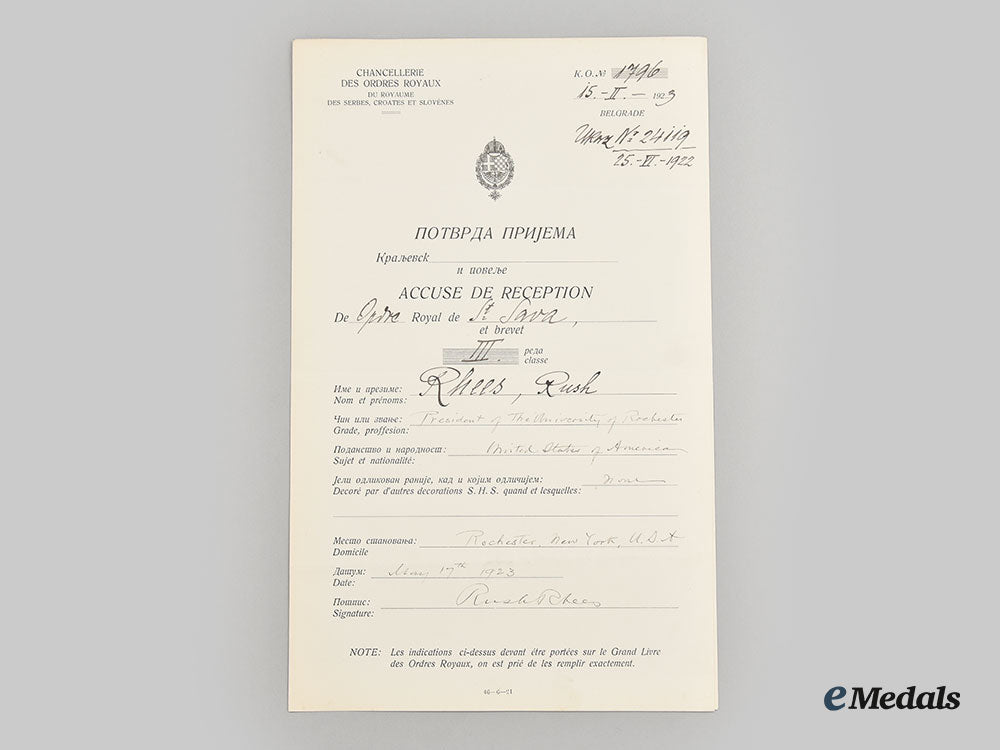 CHANCELLERIE
DES ORDRES ROYAUX
DU ROYAUME
DES SERBES, CROATES ET SLOVÈNES
K. O. № 1796
15.-II.- 1923
BELGRADE
Указ № 24119
25.-VI.-1922
ПОТВРДА ПРИЈЕМА
Краљевск
и повеље
ACCUSE DE RECEPTION
De Ордre Royal de St. Sava,
et brevet
III. реда
classe
Име и презиме: Rhees, Rush
Nom et prénoms:
Чин или звање: President of The University of Rochester
Grade, proffesion:
Поданство и народност: United States of America
Sujet et nationalité:
Јели одликован раније, кад и којим одличјем: none
Decoré par d'autres decorations S. H. S. quand et lesquelles:
Место становања: Rochester, New York, U.S.A
Domicile
Датум: May 17th 1923
Date:
Потпис: Rush Rhees
Signature:
NOTE: Les indications ci-dessus devant être portées sur le Grand Livre
des Ordres Royaux, on est prié de les remplir exactement.
46—6—21
eMedals